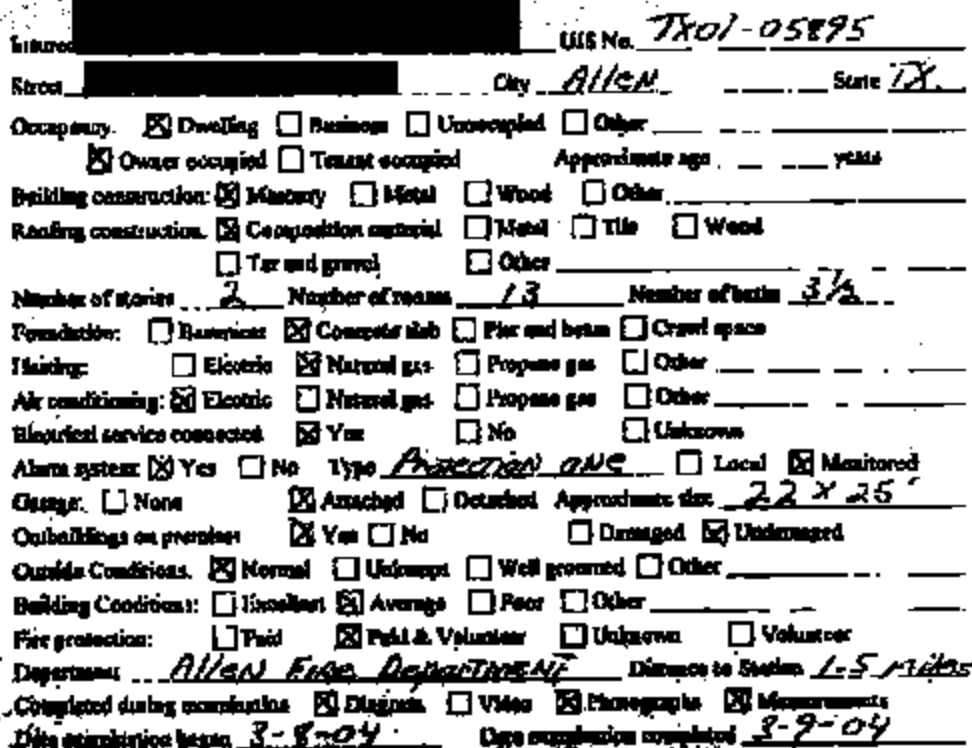 Insured UIS No. TX01-05895
Street City Allen State TX.
Occupancy. ☒ Dwelling ☐ Business ☐ Unoccupied ☐ Other
☒ Owner occupied ☐ Tenant occupied Approximate age years
Building construction: ☒ Masonry ☐ Metal ☐ Wood ☐ Other
Roofing construction. ☒ Composition material ☐ Metal ☐ Tile ☐ Wood
☐ Tar and gravel ☐ Other
Number of stories 2 Number of rooms 13 Number of baths 3 1/2
Foundation: ☐ Basement ☒ Concrete slab ☐ Pier and beam ☐ Crawl space
Heating: ☐ Electric ☒ Natural gas ☐ Propane gas ☐ Other
Air conditioning: ☒ Electric ☐ Natural gas ☐ Propane gas ☐ Other
Electrical service connected ☒ Yes ☐ No ☐ Unknown
Alarm system: ☒ Yes ☐ No Type Protection one ☐ Local ☒ Monitored
Garage: ☐ None ☒ Attached ☐ Detached Approximate size 22 x 25'
Outbuildings on premises ☒ Yes ☐ No ☐ Damaged ☒ Undamaged
Outside Conditions. ☒ Normal ☐ Unkempt ☐ Well groomed ☐ Other
Building Conditions: ☐ Excellent ☒ Average ☐ Poor ☐ Other
Fire protection: ☐ Paid ☒ Paid & Volunteer ☐ Unknown ☐ Volunteer
Department Allen Fire Department Distance to Station 1-5 miles
Completed during examination ☒ Diagram ☐ Video ☒ Photographs ☒ Measurements
Date examination began 3-8-04 Date examination completed 3-9-04